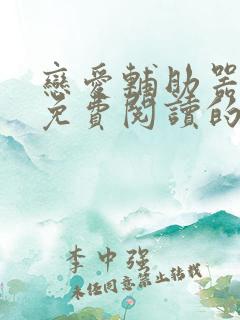 戀愛輔助器
免費閱讀的
李中强
未任同意禁止转载